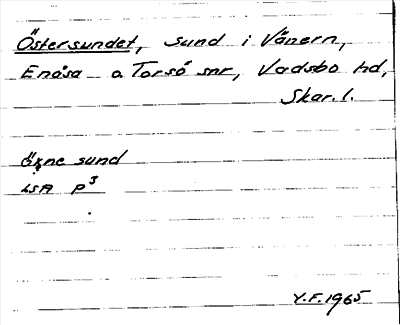 Östersundet, sund i Vänern,
Enåsa o. Torsö snr, Vadsbo hd,
Skar. l.
sund
LSA p³
Y.F. 1965